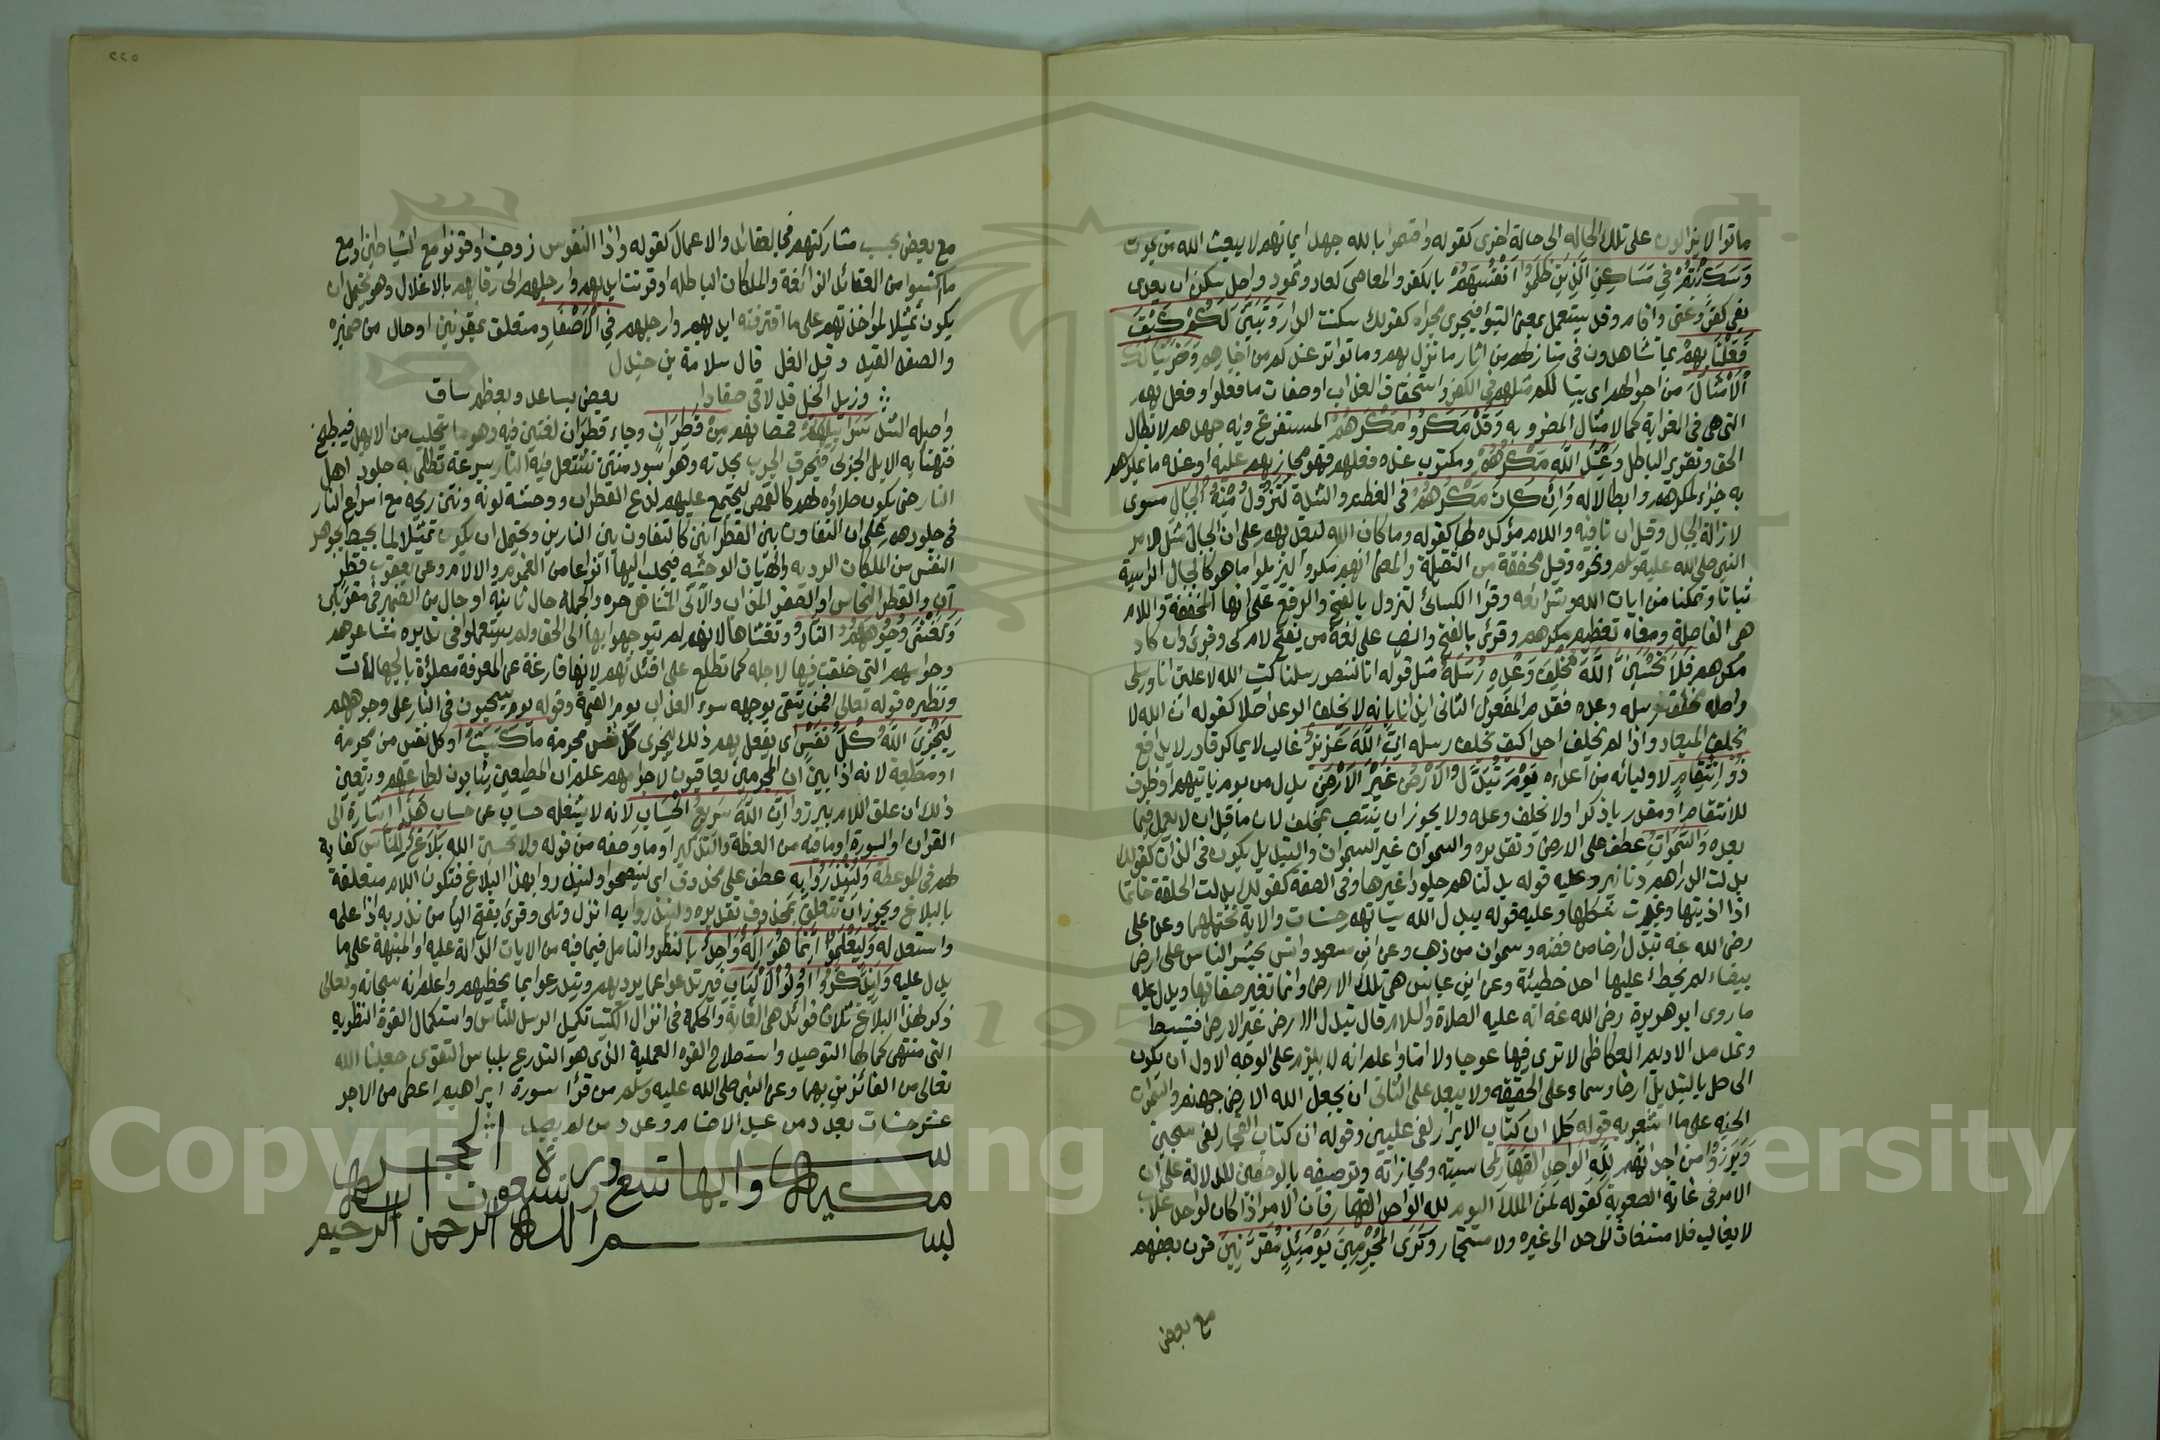 ماتوا لا يزالون على تلك الحالة الى حالة اخرى كقوله واقسموا بالله جهد ايمانهم لا يبعث الله من يموت
وَسَكَنْتُمْ فِي مَسَاكِنِ الَّذِينَ ظَلَمُوا اَنْفُسَهُمْ بالكفر والمعاصى كعاد وثمود واصل سكن ان يعدى
بفي كقر وغنى واقام وقد يستعمل بمعنى التبوا فيجرى مجراه كقولك سكنت الدار وَتَبَيَّنَ لَكُمْ كَيْفَ
فَعَلْنَا بِهِمْ بما تشاهدون في منازلهم من اثار ما نزل بهم وما تواتر عندكم من اخبارهم وَضَرَبْنَا لَكُمُ
الْاَمْثَالَ من احوالهم اى بينا لكم مثلهم في الكفر واستحقاق العذاب او صفات ما فعلوا وفعل بهم
التى هى في الغرابة كالامثال المضروبه وَقَدْ مَكَرُوا مَكْرَهُمْ المستفرغ فيه جهدهم لابطال
الحق وتقرير الباطل وَعِنْدَ اللَّهِ مَكْرُهُمْ ومكتوب عنده فعلهم فهو مجازيهم عليه او عنده ما يمكرهم
به جزاء لمكرهم وابطالا له وَاِنْ كَانَ مَكْرُهُمْ في العظم والشدة لِتَزُولَ مِنْهُ الْجِبَالُ مسوى
لازالة الجبال وقيل ان نافيه واللام مؤكده لها كقوله وما كان الله ليعذبهم على ان الجبال مثل لامر
النبى صلى الله عليه وسلم ونحوه وقيل مخففة من الثقيلة والمعنى انهم مكروا ليزيلوا ما هو كالجبال الراسية
ثباتا وتمكنا من ايات الله وشرائعه وقرا الكسائى لتزول بالفتح والرفع على انها المخففة واللام
هى الفاصلة ومعناه تعظيم مكرهم وقرئ بالفتح والنصب على لغة من يفتح لام كى وقرئ وان كاد
مكرهم فَلَا تَحْسَبَنَّ اللَّهَ مُخْلِفَ وَعْدِهِ رُسُلَهُ مثل قوله انا لننصر رسلنا كتب الله لاغلبن انا ورسلى
واصله مخلف رسله وعده فقدم المفعول الثانى ايذانا بانه لا يخلف الوعد اصلا كقوله ان الله لا
يخلف الميعاد واذا لم يخلف احدا كيف يخلف رسله اِنَّ اللَّهَ عَزِيزٌ غالب لا يماكر قادر لا يدافع
ذُو انْتِقَامٍ لاوليائه من اعداءه يَوْمَ تُبَدَّلُ الْاَرْضُ غَيْرَ الْاَرْضِ بدل من يوم ياتيهم او ظرف
للانتقام او مقدر باذكر او لا يخلف وعده ولا يجوز ان ينتصب بمخلف لان ما قبل ان لا يعمل فيما
بعده وَالسَّمَوَاتُ عطف على الارض وتقديره والسموات غير السموات والتبديل يكون في الذات كقولك
بدلت الدراهم دنانير وعليه قوله بدلناهم جلودا غيرها وفي الصفة كقولك بدلت الحلقة خاتما
اذا اذيتها وغيرت شكلها وعليه قوله يبدل الله سيئاتهم حسنات والاية تحتملهما وعن على
رضى الله عنه تبدل ارضا من فضه وسموات من ذهب وعن ابن مسعود وانس يحشر الناس على ارض
بيضاء لم يخطئ عليها احد خطيئة وعن ابن عباس هى تلك الارض وانما تغير صفاتها ويدل عليه
ما روى ابو هريرة رضى الله عنه انه عليه الصلاة والسلام قال تبدل الارض غير الارض فتبسط
وتمد مد الاديم العكاظى لا ترى فيها عوجا ولا امتا واعلم انه لا يلزم على الوجه الاول ان يكون
الحاصل بالتبديل ارضا وسماء على الحقيقه ولا يبعد على الثانى ان يجعل الله الارض جهنم والسموات
الجنه على ما اشعر به قوله كلا ان كتاب الابرار لفي عليين وقوله ان كتاب الفجار لفي سجين
وَبَرَزُوا من اجداثهم لِلَّهِ الْوَاحِدِ الْقَهَّارِ لمحاسبته ومجازاته وتوصيفه بالوصفين للدلالة على ان
الامر في غاية الصعوبة كقوله لمن الملك اليوم لله الواحد القهار فان الامر اذا كان لواحد غلاب
لا يغالب فلا مستغاث لاحد الى غيره ولا مستجار وَتَرَى الْمُجْرِمِينَ يَوْمَئِذٍ مُقَرَّنِينَ قرن بعضهم
مع بعض
٢٢٥
مع بعض بحسب مشاركتهم في العقائد والاعمال كقوله واذا النفوس زوجت او قرنوا مع الشياطين او مع
ما اكتسبوا من العقائد الزائغة والملكات الباطله او قرنت ايديهم وارجلهم الى رقابهم بالاغلال وهو يحتمل ان
يكون تمثيلا لمؤاخذتهم على ما اقترفته ايديهم وارجلهم فِي الْاَصْفَادِ متعلق بمقرنين او حال من ضميره
والصفد القيد وقيل الغل قال سلامة بن جندل
وزيد الخيل قد لاقى صفادا  بعض بساعد وبعظم ساق
واصله الشد سَرَابِيلُهُمْ قمصانهم مِنْ قَطِرَانٍ وجاء قطران لغتين فيه وهو ما يتحلب من الابهل فيطبخ
فتهنا به الابل الجربى فيحرق الجرب بحدته وهو اسود منتن تشتعل فيه النار بسرعة تطلى به جلود اهل
النار حتى يكون طلاؤه لهم كالقمص ليجتمع عليهم لذع القطران ووحشة لونه ونتن ريحه مع اسراع النار
في جلودهم على ان التفاوت بين القطرانين كالتفاوت بين النارين ويحتمل ان يكون تمثيلا لما يحيط بجوهر
النفس من الملكات الرديه والهيات الوحشيه فيجلب اليها انواعا من الغموم والالام وعن يعقوب قطر
آن والقطر النحاس او الصفر المذاب والآنى المتناهى حره والجملة حال ثانيه او حال من الضمير في مقرنين
وَتَغْشَى وُجُوهَهُمُ النَّارُ وتغشاها لانهم لم يتوجهوا بها الى الحق ولم يستعملوا في تدبره مشاعرهم
وحواسهم التى خلقت فيها لاجله كما تطلع على افئدتهم لانها فارغة عن المعرفة مملؤة بالجهالات
ونظيره قوله تعالى افمن يتقى بوجهه سوء العذاب يوم القيمة وقوله يوم يسحبون في النار على وجوههم
لِيَجْزِىَ اللَّهُ كُلَّ نَفْسٍ اى يفعل بهم ذلك ليجزى كل نفس مجرمة مَا كَسَبَتْ او كل نفس من مجرمة
او مطيعة لانه اذا بين ان المجرمين يعاقبون لاجرامهم علم ان المطيعين يثابون لطاعتهم ويتعين
ذلك ان علق اللام ببرزوا اِنَّ اللَّهَ سَرِيعُ الْحِسَابِ لانه لا يشغله حساب عن حساب هَذَا اشارة الى
القران او السورة او ما فيه من العظة والتذكير او ما وصفه من قوله ولا تحسبن الله بَلَاغٌ لِلنَّاسِ كفاية
لهم في الموعظة وَلِيُنْذَرُوا بِهِ عطف على محذوف اى لينصحوا ولينذروا بهذا البلاغ فتكون اللام متعلقة
بالبلاغ ويجوز ان تتعلق بمحذوف تقديره ولينذروا به انزل وتلى وقرئ بفتح الياء من نذر به اذا علمه
واستعد له وَلِيَعْلَمُوا اَنَّمَا هُوَ اِلَهٌ وَاحِدٌ بالنظر والتامل فيما فيه من الايات الدالة عليه او المنبهة على ما
يدل عليه وَلِيَذَّكَّرَ اُولُوا الْاَلْبَابِ فيرتدعوا عما يرديهم ويتدرعوا بما يحظيهم واعلم انه سبحانه وتعالى
ذكر لهذا البلاغ ثلاث فوائد هى الغاية والحكمة في انزال الكتب تكميل الرسل للناس واستكمال القوة النظريه
التى منتهى كمالها التوحيد واستصلاح القوه العملية الذى هو التدرع بلباس التقوى جعلنا الله
تعالى من الفائزين بهما وعن النبى صلى الله عليه وسلم من قرا سورة ابراهيم اعطى من الاجر
عشر حسنات بعدد من عبد الاصنام وعدد من لم يعبد
ســورة الحجر
مكيه وايها تسع وتسعون اية
بسم الله الرحمن الرحيم
Copyright © King Saud University
195